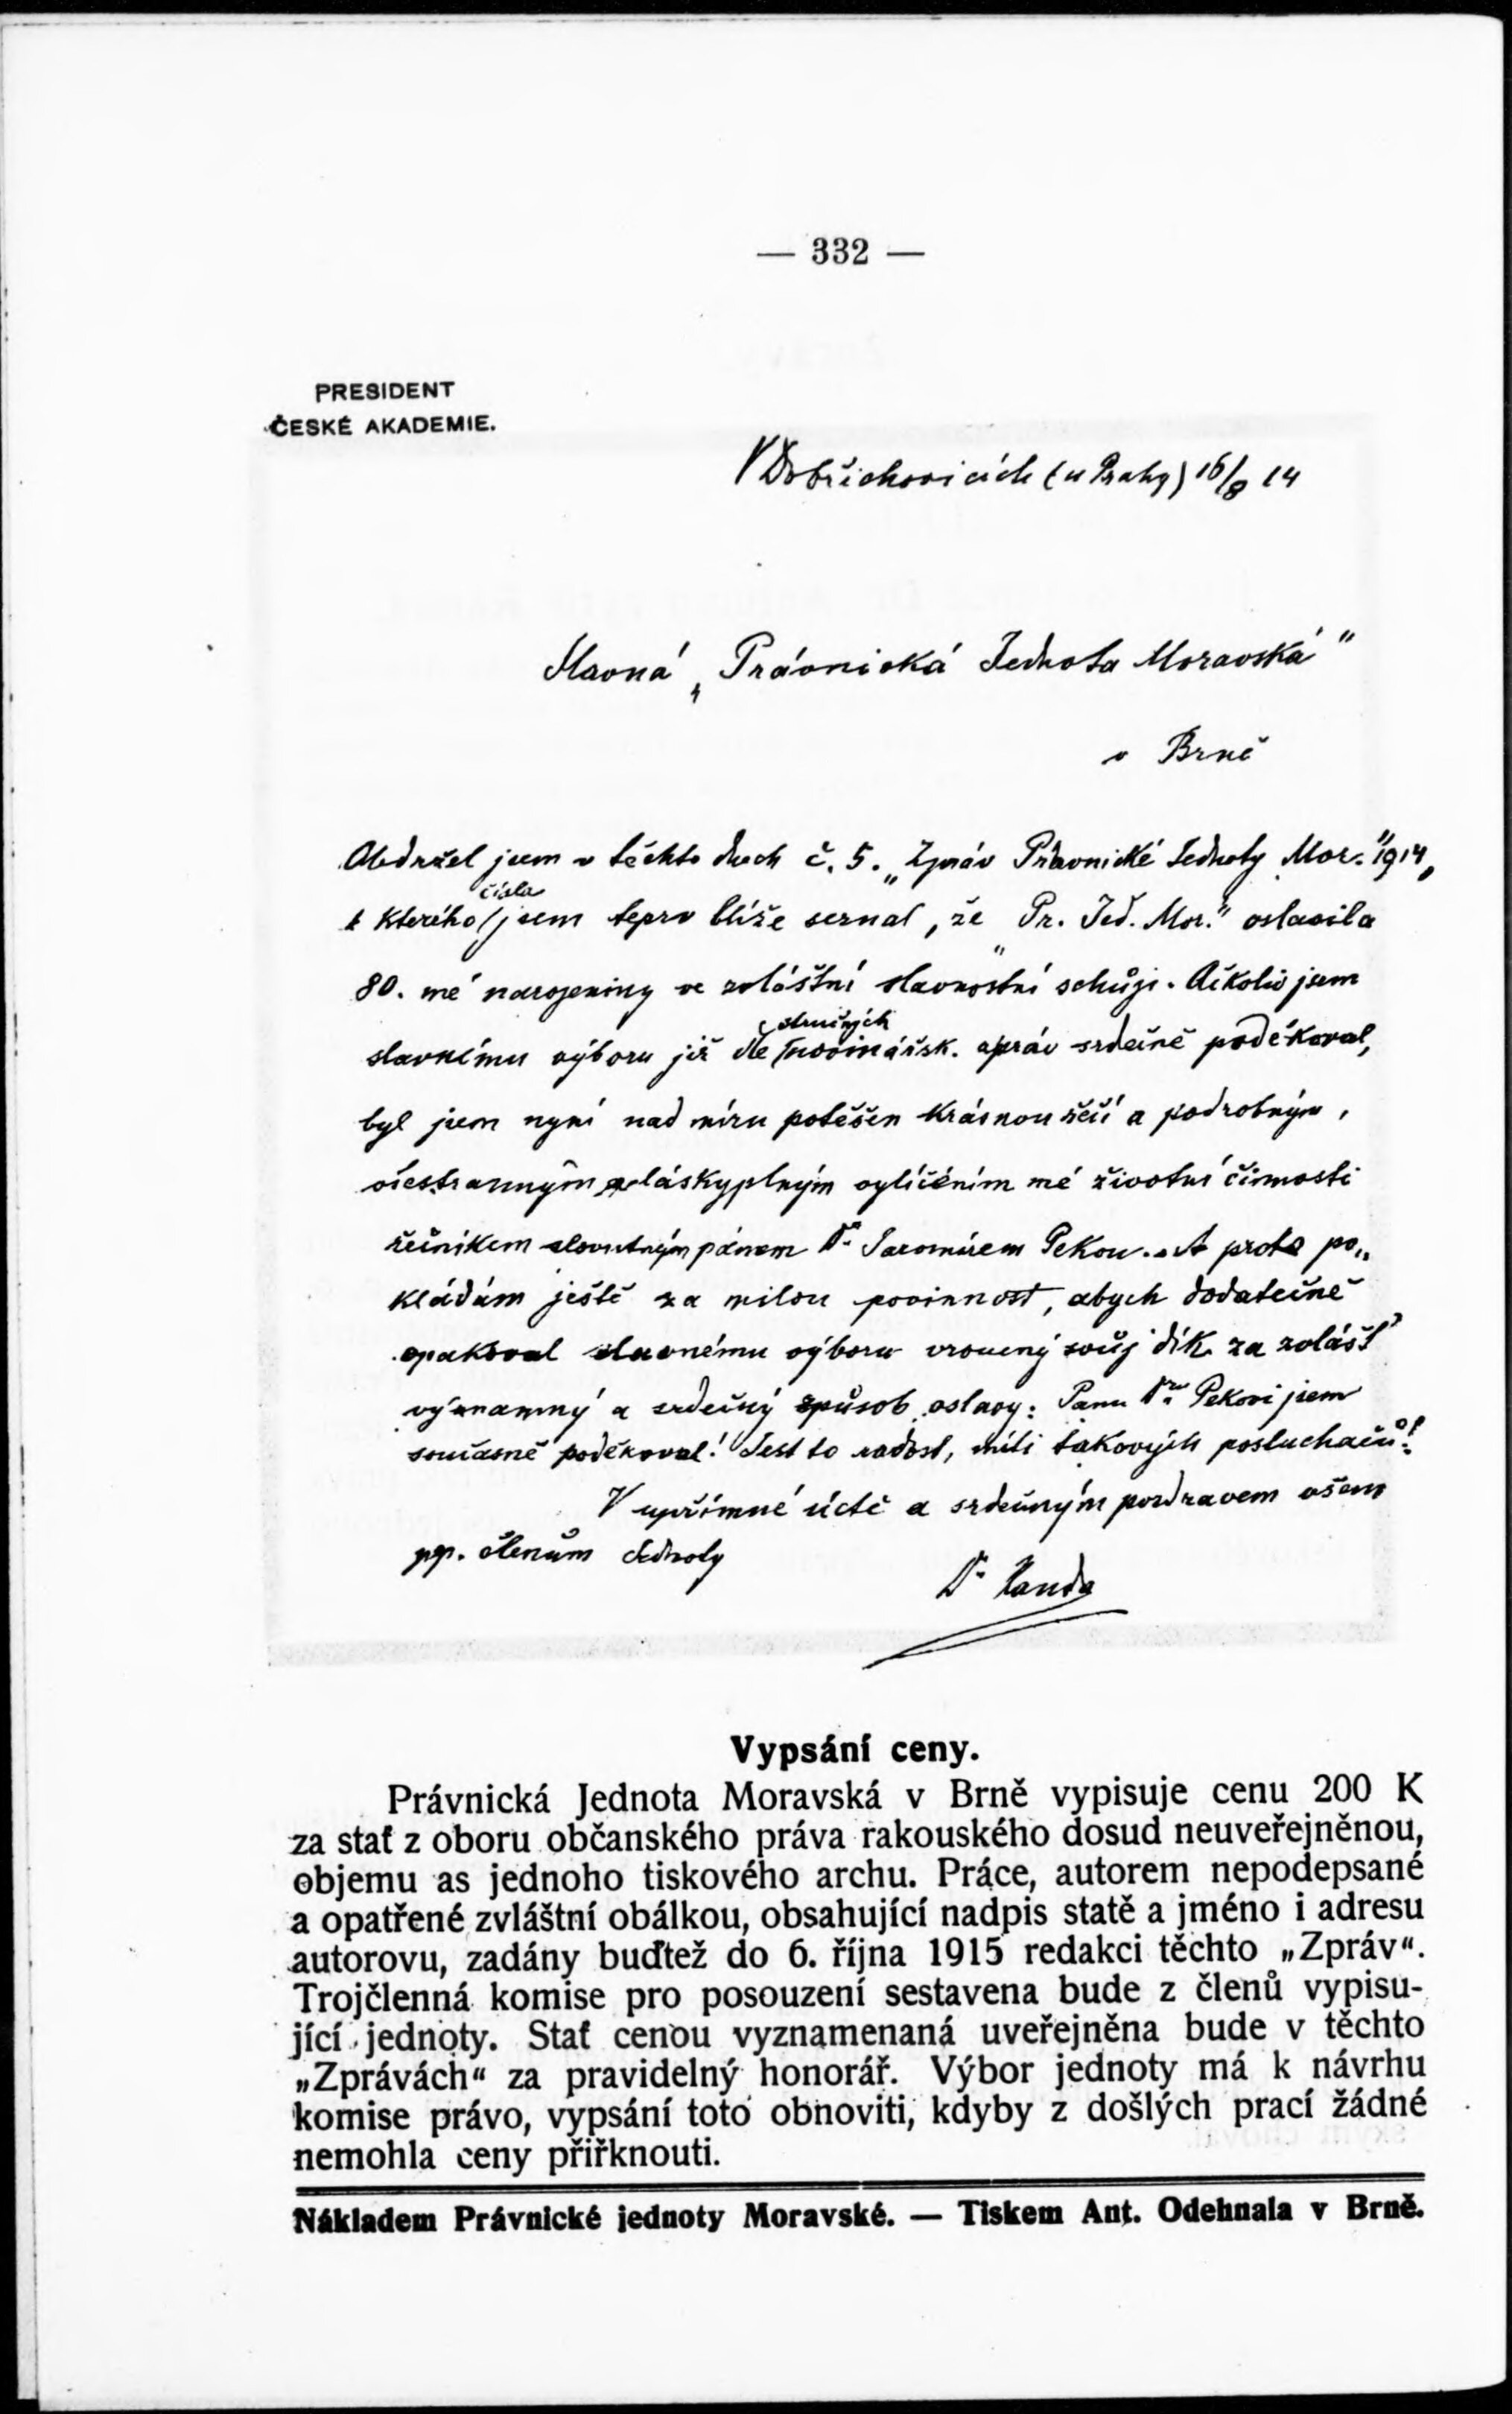 — 332 —
PRESIDENT
ČESKÉ AKADEMIE.
V Dobřichovicích (u Prahy) 16/8 14
Slavná „Právnická Jednota Moravská"
v Brně
Obdržel jsem v těchto dnech č. 5. „Zpráv Právnické Jednoty Mor." 1914,
z kterého čísla jsem teprv blíže seznal, že „Pr. Jed. Mor." oslavila
80. mé narozeniny ve zvláštní slavnostní schůzi. Ačkoliv jsem
slavnému výboru již dle stručných novinářsk. zpráv srdečně poděkoval,
byl jsem nyní nad míru potěšen krásnou řečí a podrobným,
všestranným a láskyplným vylíčením mé životní činnosti
řečníkem slovutným pánem Dr. Jaromírem Pekou. A proto po„
kládám ještě za milou povinnost, abych dodatečně
opakoval slavnému výboru vroucný svůj dík za zvlášť
významný a srdečný způsob oslavy: Panu Dru Pekovi jsem
současně poděkoval! Jest to radost, míti takových posluchačů!
V upřímné úctě a srdečným pozdravem všem
pp. členům Jednoty
Dr Randa
Vypsání ceny.
Právnická Jednota Moravská v Brně vypisuje cenu 200 K
za stať z oboru občanského práva rakouského dosud neuveřejněnou,
objemu as jednoho tiskového archu. Práce, autorem nepodepsané
a opatřené zvláštní obálkou, obsahující nadpis statě a jméno i adresu
autorovu, zadány buďtež do 6. října 1915 redakci těchto „Zpráv“.
Trojčlenná komise pro posouzení sestavena bude z členů vypisu-
jící jednoty. Stať cenou vyznamenaná uveřejněna bude v těchto
„Zprávách“ za pravidelný honorář. Výbor jednoty má k návrhu
komise právo, vypsání toto obnoviti, kdyby z došlých prací žádné
nemohla ceny přiřknouti.
Nákladem Právnické jednoty Moravské. — Tiskem Ant. Odehnala v Brně.